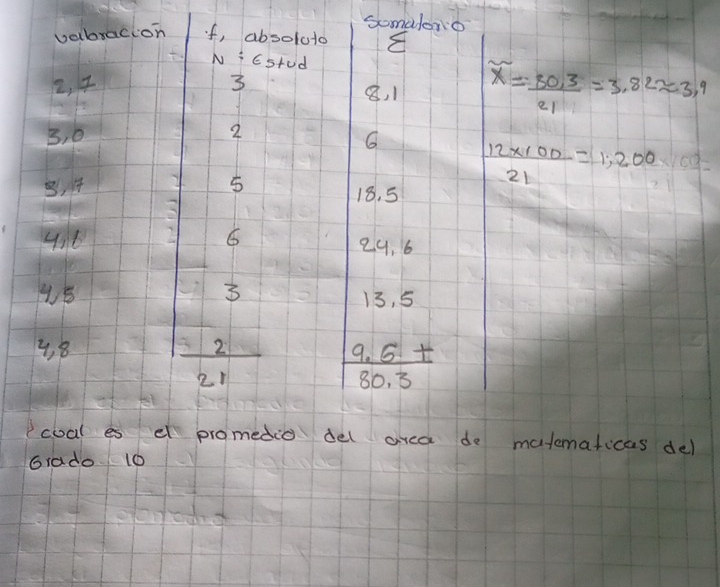 valoracion f, absoluto Sumatorio
N : Estud Σ
2,7 3 8,1
3,0 2 6
3,7 5 18.5
4,1 6 24,6
4,5 3 13,5
4,8 2 9.6 +
21 80.3
x̃ = 80,3 = 3,82 ≈ 3,9
21
12x100 = 1,200
21
cual es el promedio del area de matematicas del
Grado 10